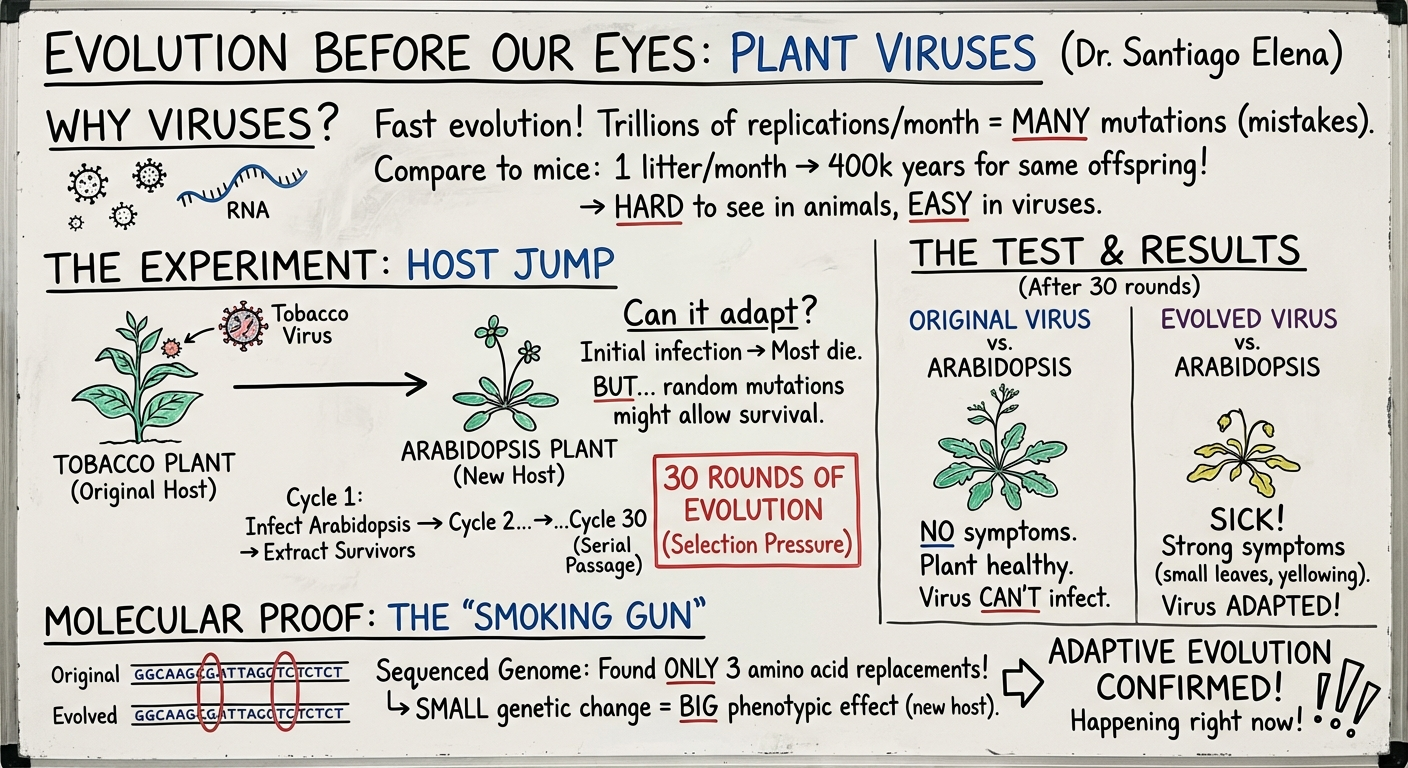 EVOLUTION BEFORE OUR EYES: PLANT VIRUSES (Dr. Santiago Elena)
WHY VIRUSES?
Fast evolution! Trillions of replications/month = MANY mutations (mistakes).
Compare to mice: 1 litter/month → 400k years for same offspring!
→ HARD to see in animals, EASY in viruses.
RNA
THE EXPERIMENT: HOST JUMP
Tobacco
Virus
TOBACCO PLANT
(Original Host)
ARABIDOPSIS PLANT
(New Host)
Can it adapt?
Initial infection → Most die.
BUT... random mutations
might allow survival.
Cycle 1:
Infect Arabidopsis → Cycle 2...→...Cycle 30
→ Extract Survivors
(Serial
Passage)
30 ROUNDS OF
EVOLUTION
(Selection Pressure)
THE TEST & RESULTS
(After 30 rounds)
ORIGINAL VIRUS
vs.
ARABIDOPSIS
NO symptoms.
Plant healthy.
Virus CAN'T infect.
EVOLVED VIRUS
vs.
ARABIDOPSIS
SICK!
Strong symptoms
(small leaves, yellowing).
Virus ADAPTED!
MOLECULAR PROOF: THE "SMOKING GUN"
Original GGCAAGCGATTAGCTCTCTCT
Evolved GGCAAGCGATTAGCTCTCTCT
Sequenced Genome: Found ONLY 3 amino acid replacements!
↳ SMALL genetic change = BIG phenotypic effect (new host).
ADAPTIVE EVOLUTION
CONFIRMED!
Happening right now!
!!!